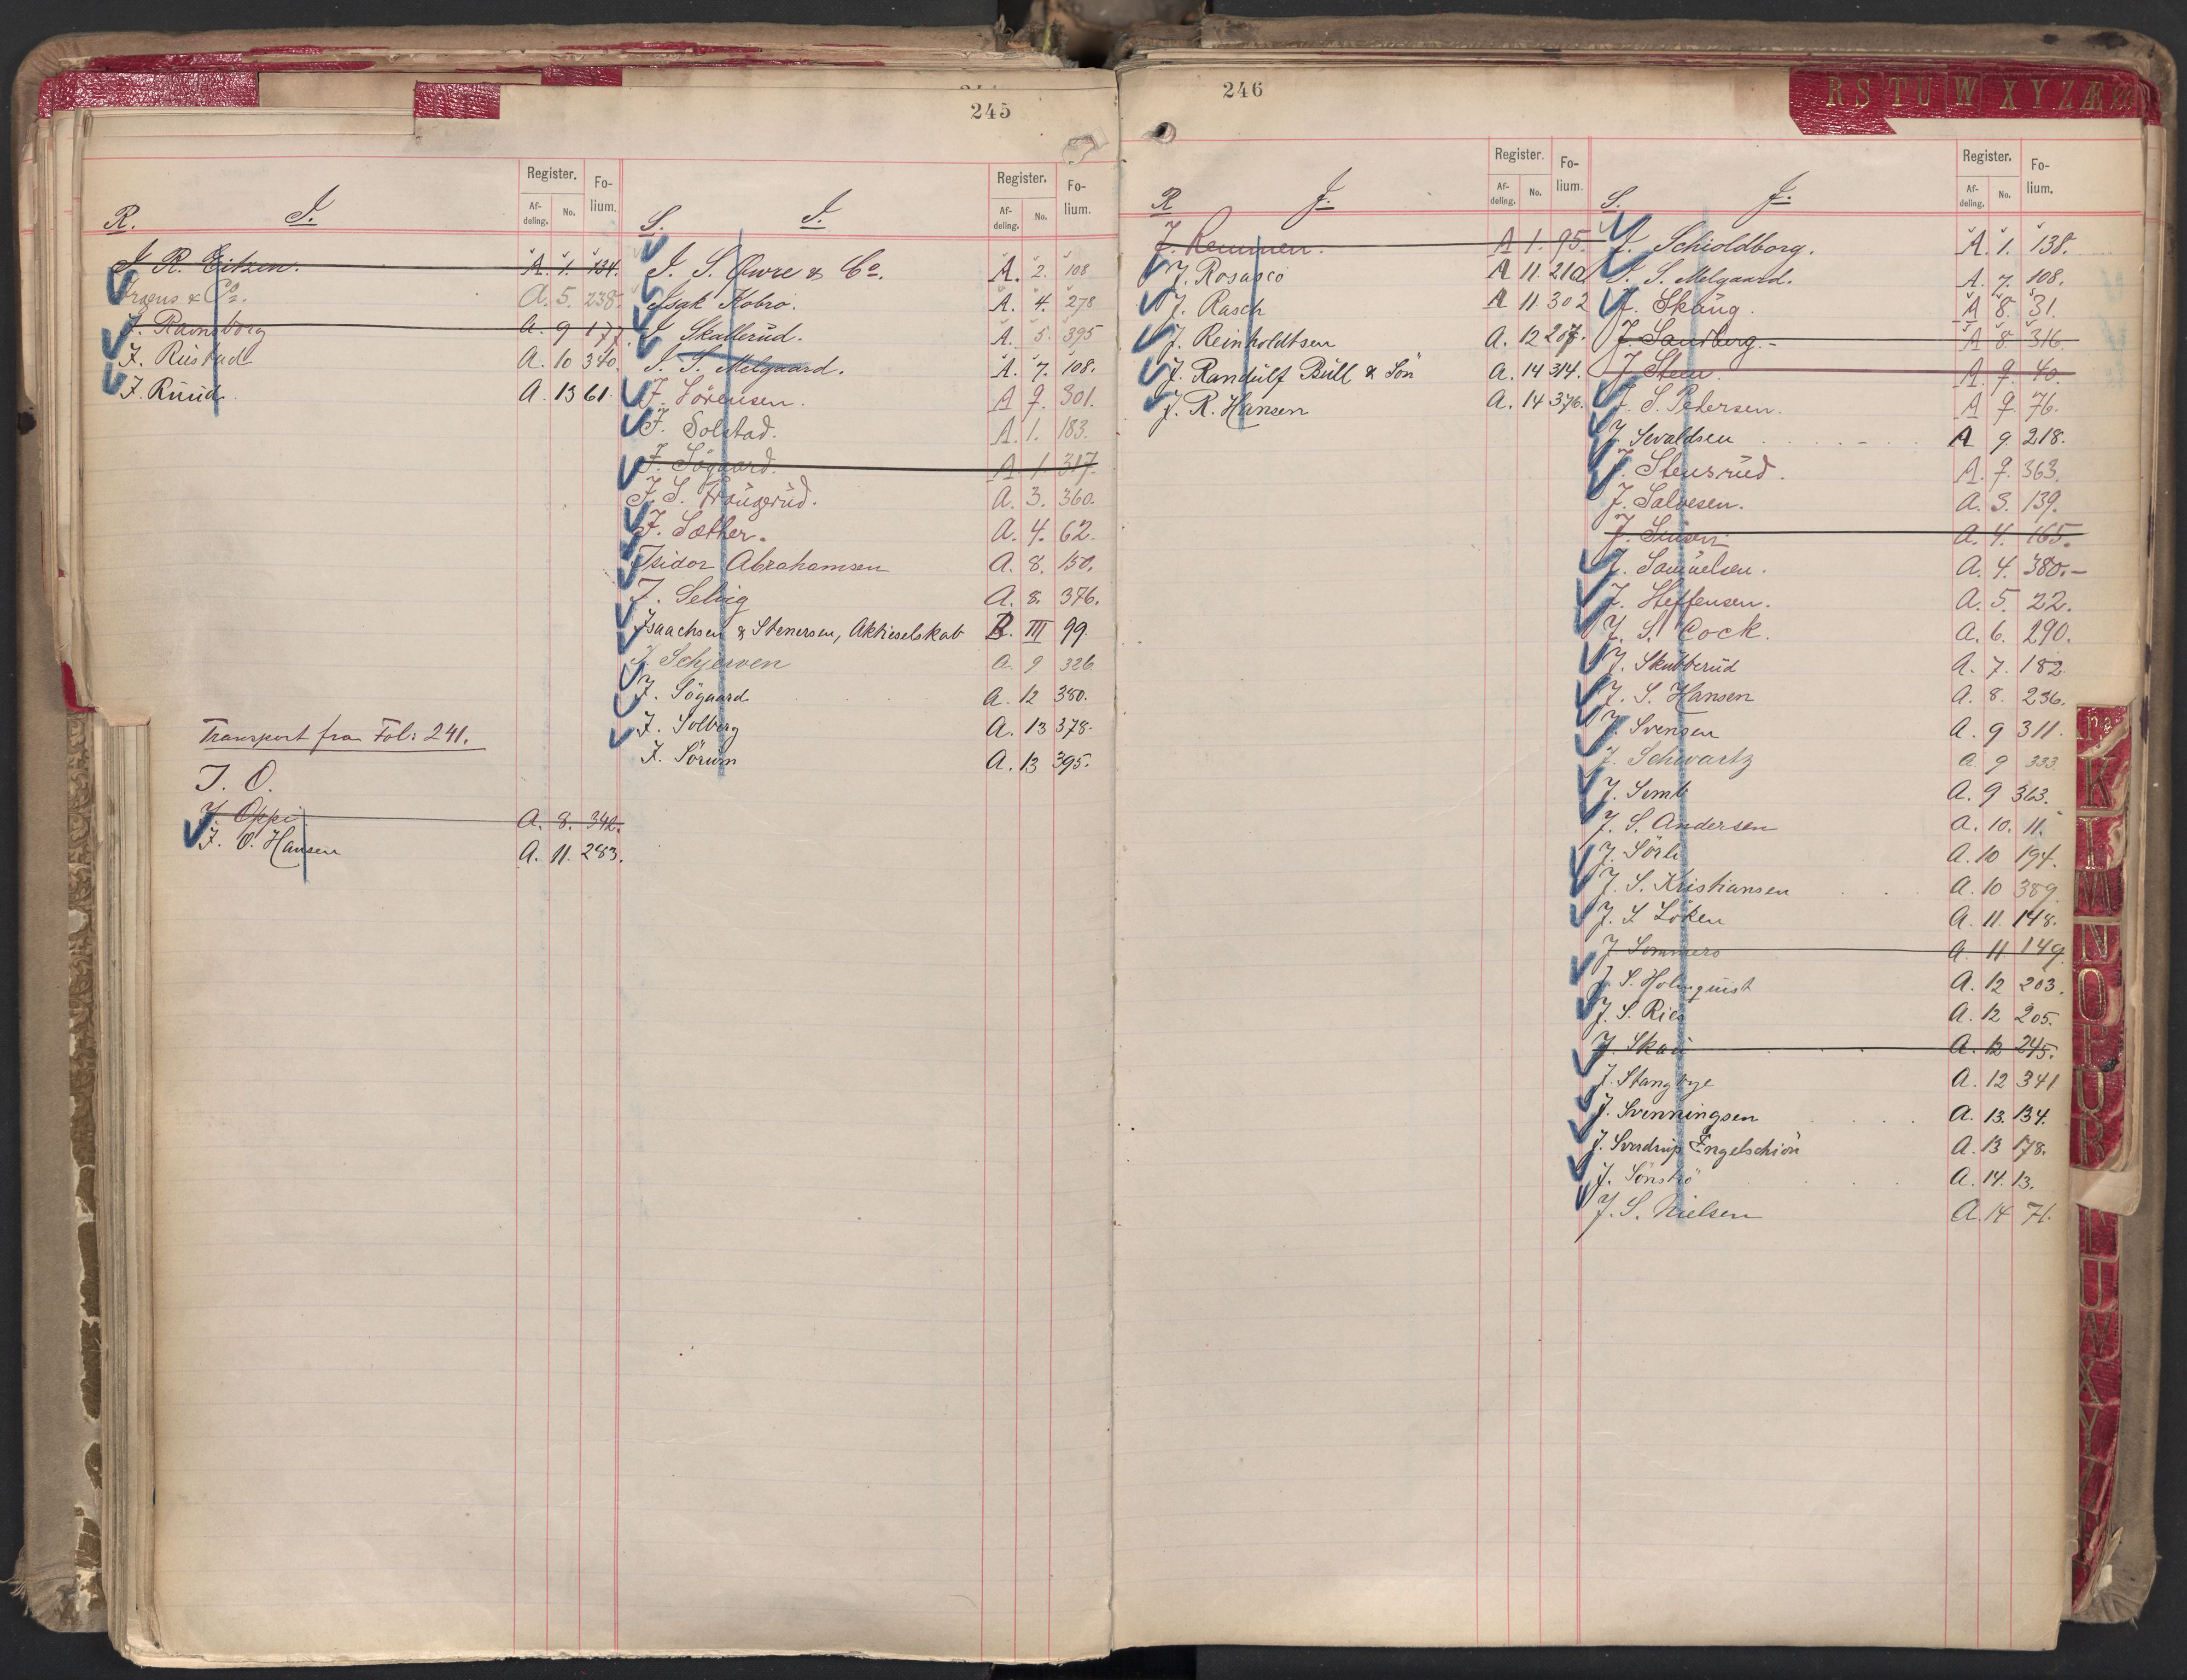 245
Register. Folium.
Afdeling. No.
R. I.
I. R. Eitzen. A. 1. 134.
& Co. A. 5. 238.
I. Ravnsborg A. 9 177
I. Rustad A. 10 340.
I. Ruud. A. 13 61.
Transport fra Fol: 241.
I. O.
I. Oppi. A. 8. 342.
I. O. Hansen A. 11. 283.
Register. Folium.
Afdeling. No.
S. I.
I. S. Owre & Co. A. 2. 108
Isak Kobro. A. 4. 278
I. Skallerud. A. 5. 395
I. S. Melgaard. A. 7. 108.
I. Sörensen. A 9. 301.
I. Solstad. A. 1. 183.
I. Sögaard. A. 1. 317.
I. S. A. 3. 360.
I. Sæther. A. 4. 62.
Isidor Abrahamsen A. 8. 150.
I. Selvig A. 8. 376.
Isaachsen & Stenersen, Aktieselskab B. III 99.
I. Schjerven A. 9 326
I. Sögaard A. 12 380.
I. Solberg A. 13 378.
I. Sörum A. 13 395.
246
Register. Folium.
Afdeling. No.
R J.
J. Remmen. A 1. 95.
J. Rosasco A 11. 210
J. Rasch A 11. 302
J. Reinholdtsen A. 12 207.
J. Randulf Bull & Sön A. 14 314.
J. R. Hansen A. 14 376.
Register. Folium.
Afdeling. No.
S. J.
J. Schioldborg. A. 1. 138.
J. S. Melgaard. A. 7. 108.
J. Skaug. A 8. 31.
J. Sandberg. - A 8 316.
J. Steen. A. 9. 40.
J. S. Petersen. A 9. 76.
J. Sevaldsen A 9. 218.
J. Stensrud. A. 9. 363.
J. Salvesen. A. 3. 139.
J. A. 4. 165.
J. Samuelsen. A. 4. 380.-
J. Steffensen. A. 5. 22.
J. S. Cock. A. 6. 290.
J. Skubberud A. 7. 182.
J. S. Hansen A. 8. 236.
J. Svensen A. 9 311.
J. Schwartz A 9 333.
J. Semb A. 9 363.
J. S. Andersen A. 10. 11.
J. Sörli A. 10 194.
J. S. Kristiansen A. 10 389.
J. S. Löken A. 11. 148.
J. Sommero A. 11. 149.
J. S. Holmquist A. 12 203.
J. S. Ries A. 12 205.
J. Skau A. 12 245.
J. Stangbye A. 12 341
J. Svenningsen A. 13. 134.
J. Sverdrup Engelschiön A. 13 178.
J. Sönströ A. 14. 13.
J. S. Nielsen A. 14 71.
R S T U W X Y Z Æ
K
L
M
N
O
P
U
R
U
W
X
Y